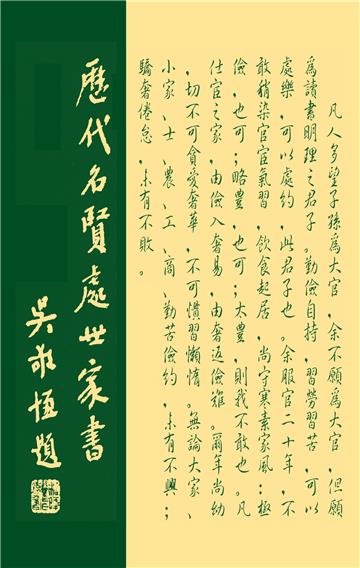 凡人多望子孫為大官，余不願為大官，但願
為讀書明理之君子。勤儉自持，習勞習苦，可以
處樂，可以處約，此君子也。余服官二十年，不
敢稍染官宦氣習，飲食起居，尚守寒素家風；極
儉，也可；略豐，也可；太豐，則我不敢也。凡
仕宦之家，由儉入奢易，由奢返儉難。爾年尚幼
，切不可貪愛奢華，不可慣習懶惰。無論大家、
小家、士、農、工、商，勤苦儉約，未有不興；
驕奢倦怠，未有不敗。
歷代名賢處世家書
吳敬恆題